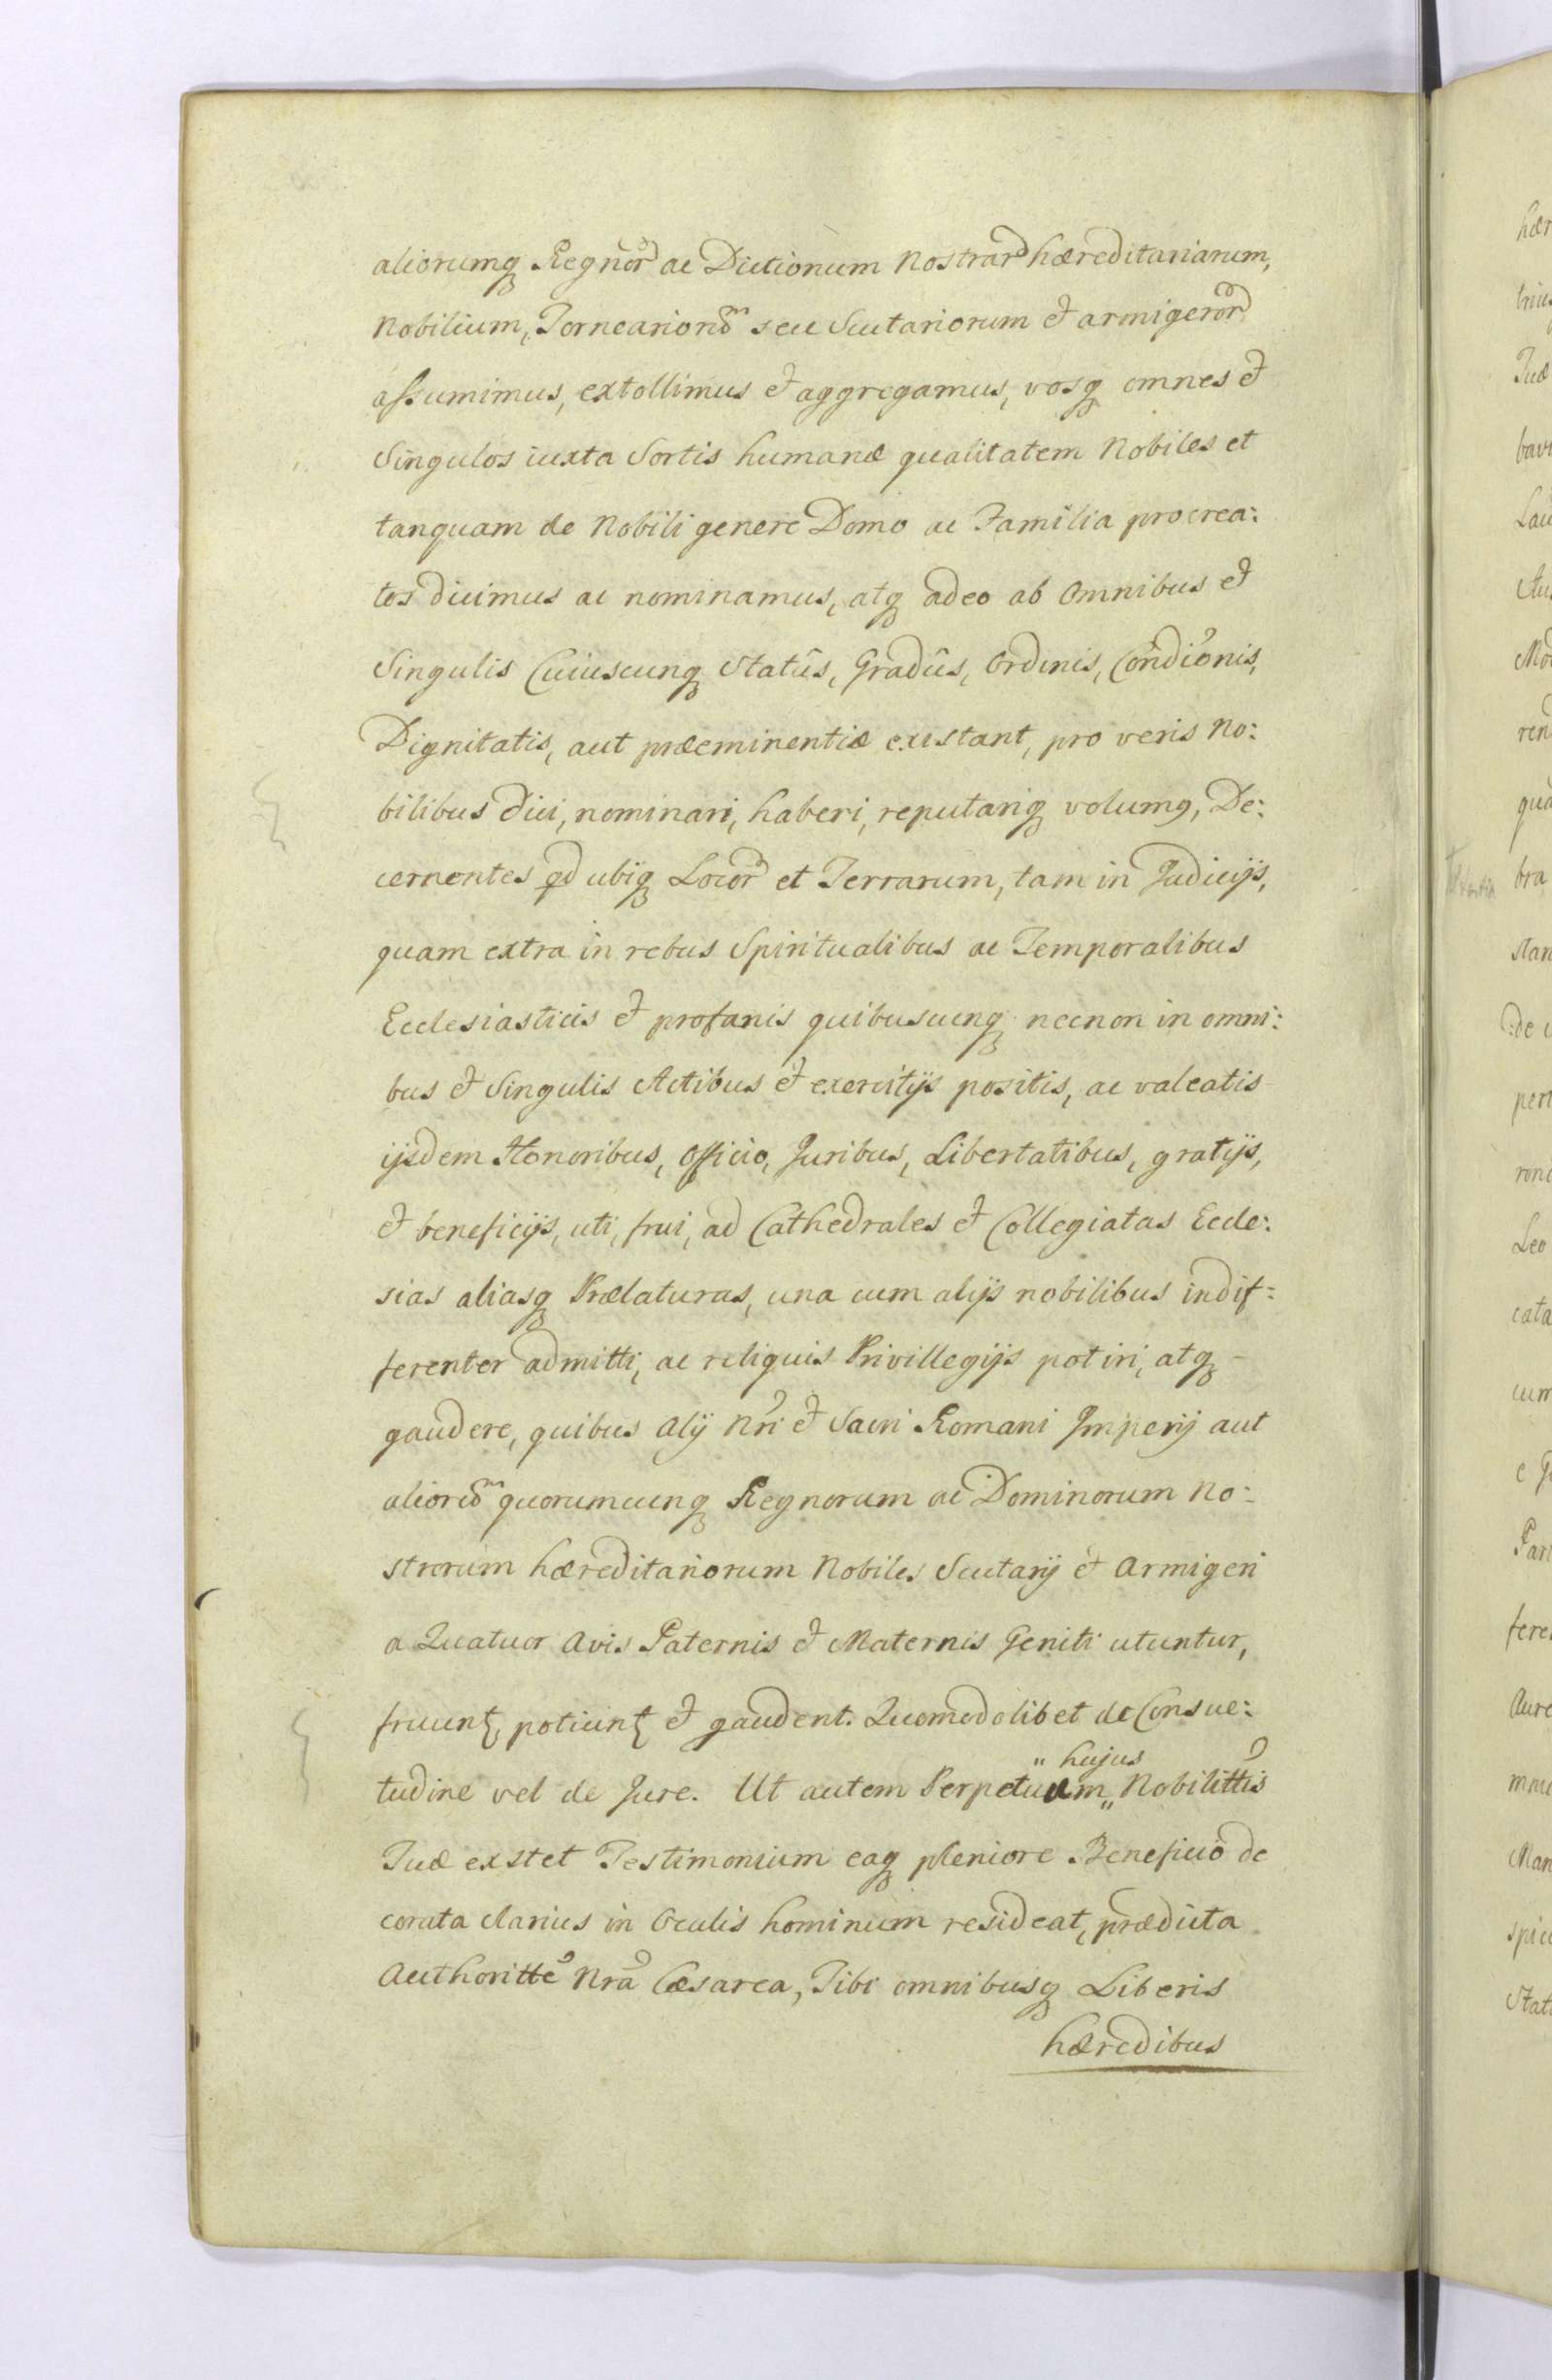 aliorumq Regnor ac Dictionum Nostrar hæreditariarum,
Nobilium, Tornearioru͠m seu Scutariorum et armigeror
assumimus, extollimus et aggregamus, vosq omnes et
Singulos iuxta Sortis humanæ qualitatem Nobiles et
tanquam de Nobili genere Domo ac Familia procrea:
tos dicimus ac nominamus, atq adeo ab Omnibus et
Singulis Cuiuscunq Statûs, Gradûs, Ordinis, Condiönis,
Dignitatis, aut præeminentiæ existant, pro veris No:
bilibus dici, nominari, haberi, reputariq volumꝯ, De:
cernentes qd ubiq Locor et Terrarum, tam in Judicijs,
quam extra in rebus Spiritualibus ac Temporalibus
Ecclesiasticis et profanis quibuscunq necnon in omni:
bus et Singulis Actibus et exercitijs positis, ac valeatis
ijsdem Honoribus, Officio, Juribus, Libertatibus, gratijs,
et beneficijs, uti, frui, ad Cathedrales et Collegiatas Eccle:
sias aliasq Prælaturas, una cum alijs nobilibus indif:
ferenter admitti, ac reliquis Privillegijs potiri, atq
gaudere, quibus Alij Nri et Sacri Romani Imperij aut
alioru͠m quorumcunq Regnorum ac Dominorum No:
strorum hæreditariorum Nobiles Scutarij et Armigeri
a Quatuor Avis Paternis et Maternis Geniti utuntur,
fruunt, potiunt et gaudent. Quomodolibet de Consue:
tudine vel de Jure. Ut autem Perpetuum " hujus " Nobilittis
Tuæ exstet Testimonium eaq pleniore Beneficio de
corata clarius in Oculis hominum resideat, prædicta
Authoritte Nra Cæsarea, Tibi omnibusq Liberis
hæredibus